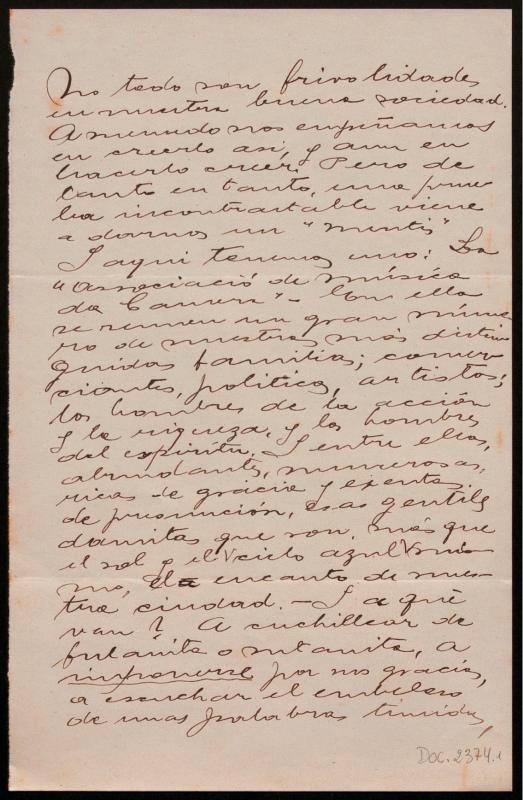 No todo son frivolidades
en nuestra buena sociedad.
A menudo nos empeñamos
en creerlo así, y aun en
hacerlo creer. Pero de
tanto en tanto, una prue-
ba incontrastable viene
a darnos un "mentis"
I aqui tenemos uno: La
"Associació de música
da Camera" - Con ella
se reunen un gran núme-
ro de nuestras más distin-
guidas familias; comer-
ciantes, politicos, artistas;
los hombres de la acción
y la riqueza, y los hombres
del espiritu. I entre ellos,
abundantes, numerosas,
ricas de gracia y exentas
de presunción, esas gentiles
damitas que son, más que
el sol y el cielo azul mis-
mo, el encanto de nues-
tra ciudad. - I a qué
van? A cuchillear de
fulanita o zutanita, a
imponerse por sus gracias,
a escuchar el embeleso
de unas palabras timidas,
Doc. 2374.1